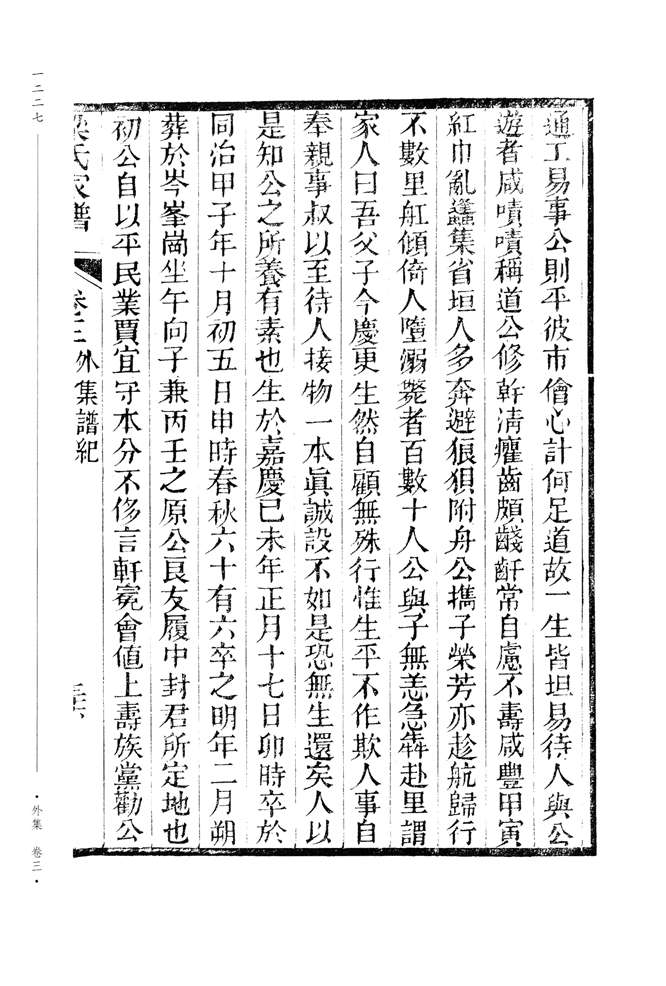 通工易事公則平彼市儈心計何足道故一生皆坦易待人與公
遊者咸嘖嘖稱道公修幹清癯齒頗齾齗常自慮不壽咸豐甲寅
紅巾亂蠭集省垣人多奔避狼狽附舟公攜子榮芳亦趁航歸行
不數里舡傾倚人墮溺斃者百數十人公與子無恙急犇赴里謂
家人曰吾父子今慶更生然自顧無殊行惟生平不作欺人事自
奉親事叔以至待人接物一本眞誠設不如是恐無生還矣人以
是知公之所養有素也生於嘉慶己未年正月十七日卯時卒於
同治甲子年十月初五日申時春秋六十有六卒之明年二月朔
葬於岑峯崗坐午向子兼丙壬之原公良友履中封君所定地也
初公自以平民業賈宜守本分不侈言軒冕會値上壽族黨勸公
梁氏家譜 卷三外集譜紀
一二二七
·外集 卷三·